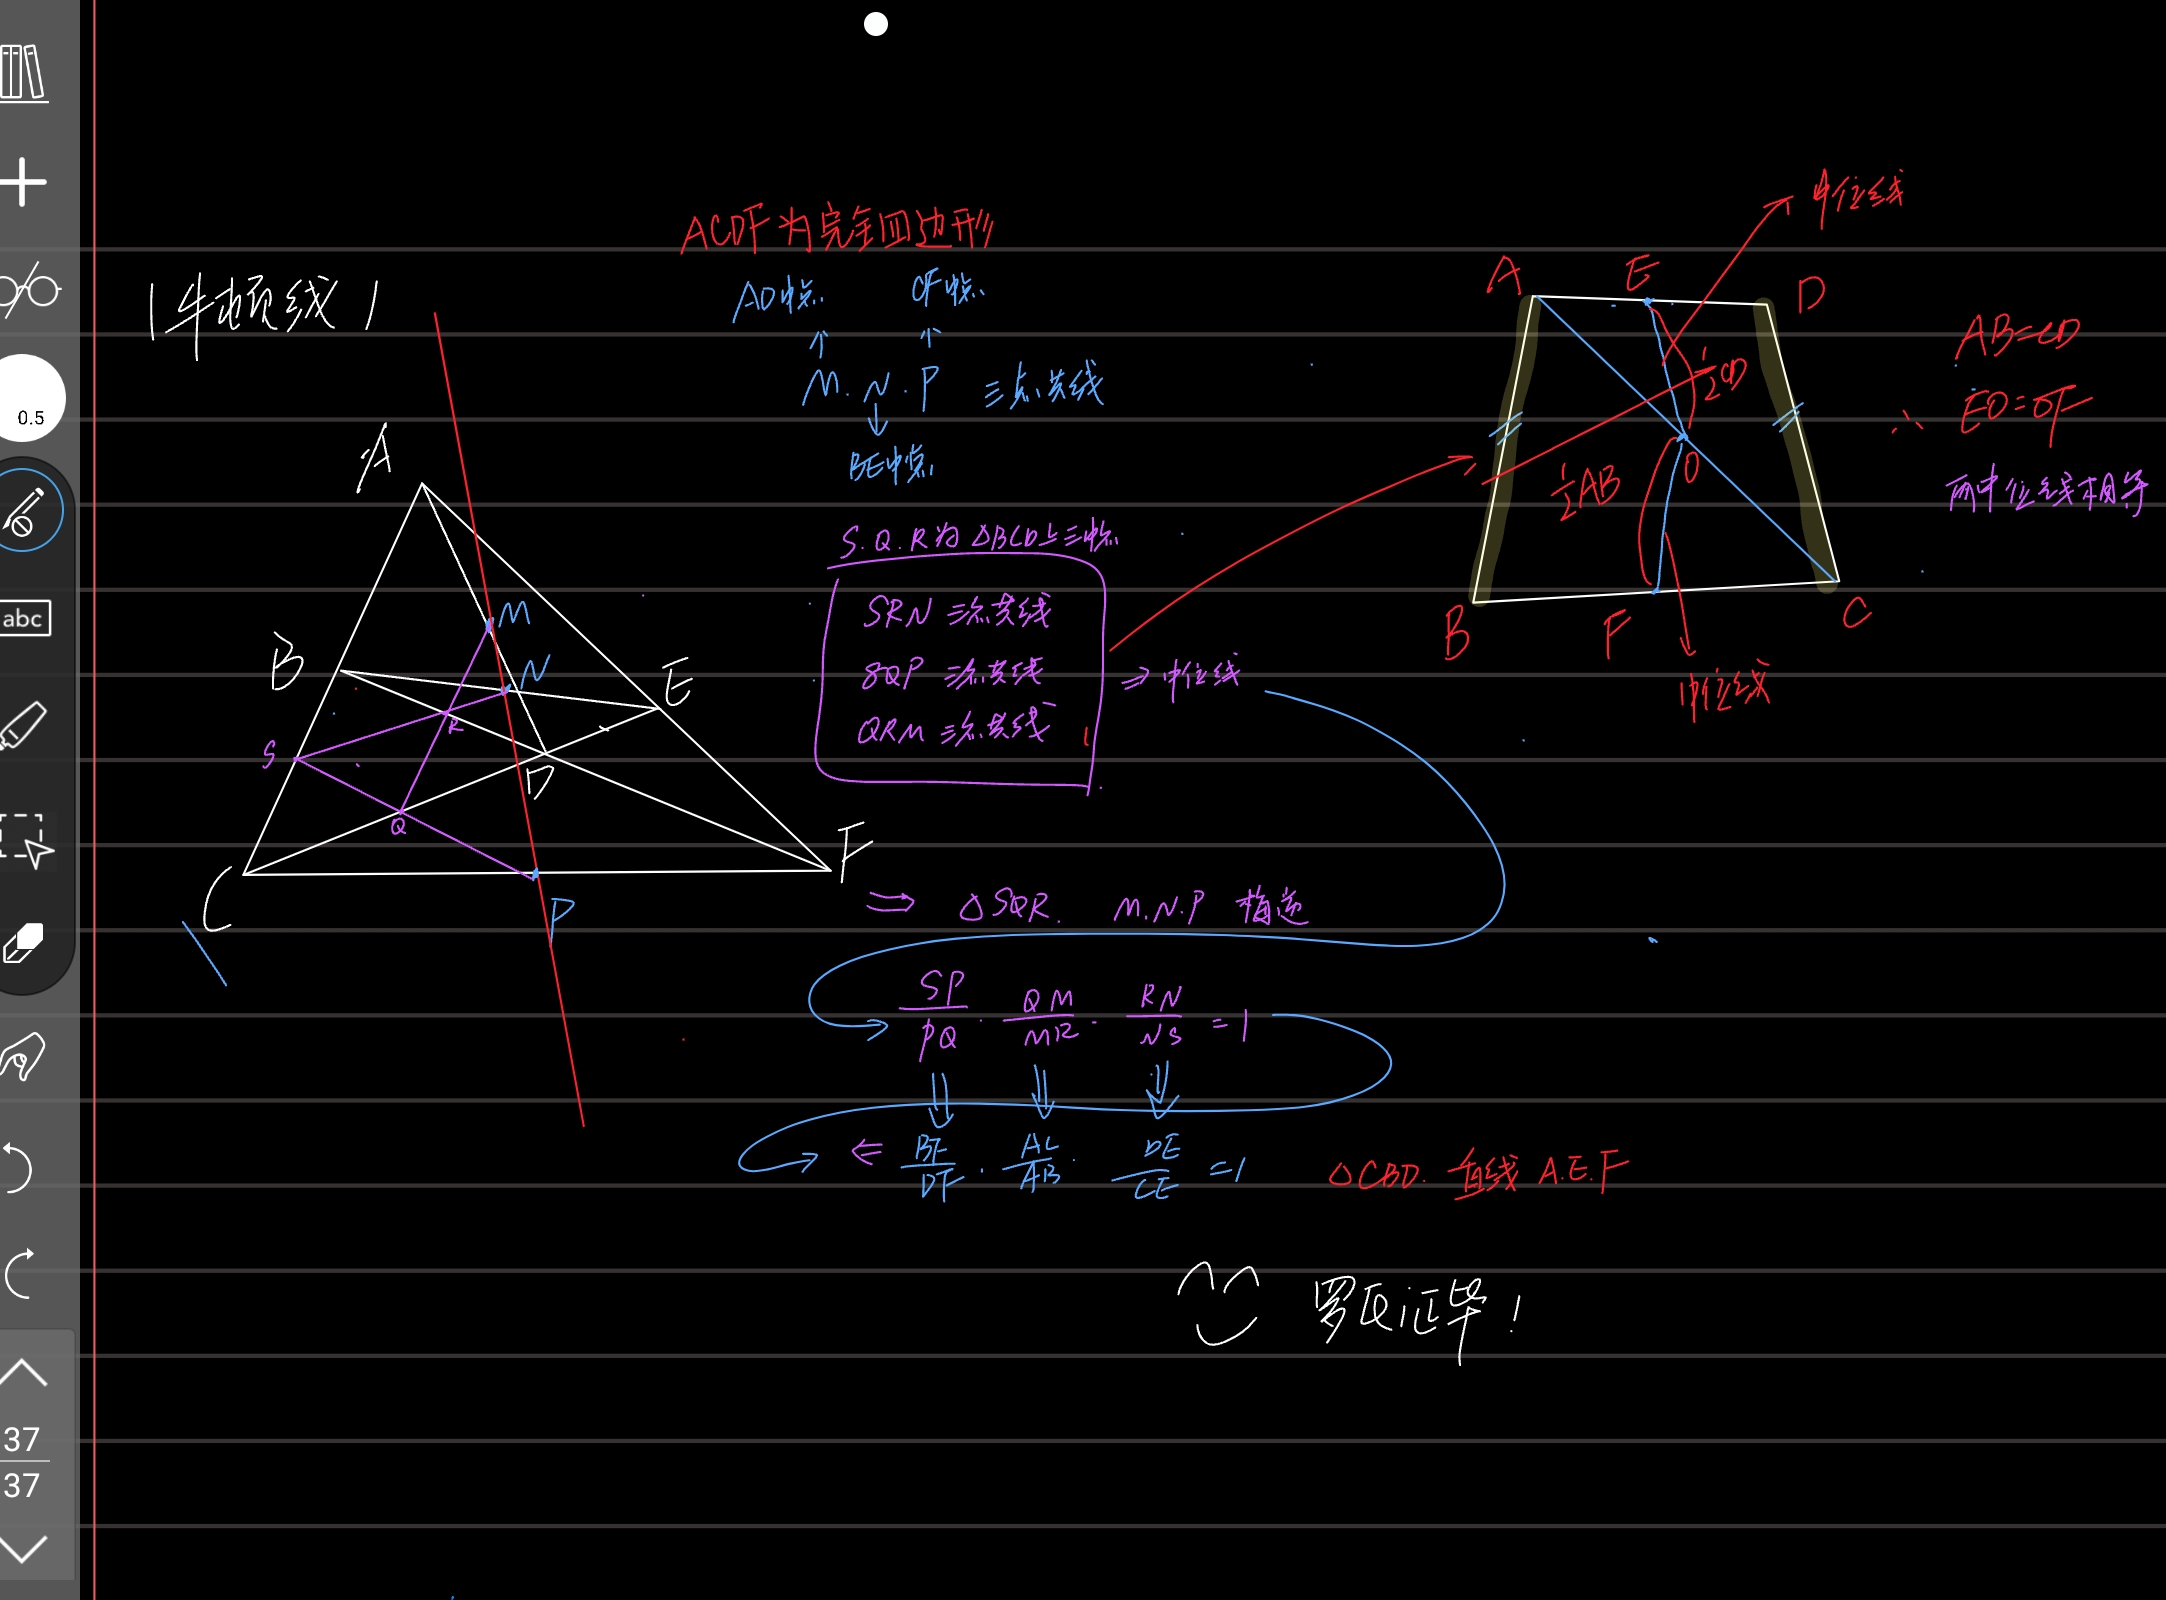 ACDF为完全四边形
|牛顿线|
AD中点 CF中点
M.N.P 三点共线
BE中点
S.Q.R为△BCD上三中点
SRN 三点共线
SQP 三点共线
QRM 三点共线
⇒ 中位线
A
B
C
D
E
F
M
N
P
S
R
Q
中位线
A E D
½CD
O
½AB
B F C
中位线
AB=CD
∴ EO=OF
两中位线相等
⇒ △SQR. M.N.P 梅逆
SP/PQ · QM/MR · RN/NS =1
⇐ BF/DF · AC/AB · DE/CE =1 △CBD. 直线 A.E.F
罗氏证毕!
0.5
abc
37
37